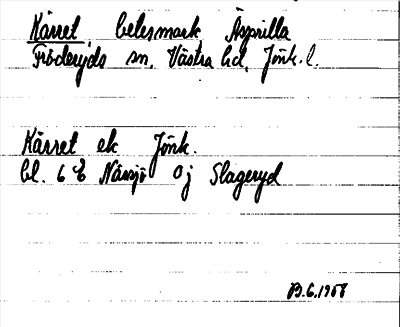 Kärret, betesmark Äsprilla
Fröderyds sn, Västra hd, Jönk. l.
Kärret ek Jönk.
bl. 6 E Nässjö 0j Slageryd
B.G.1958